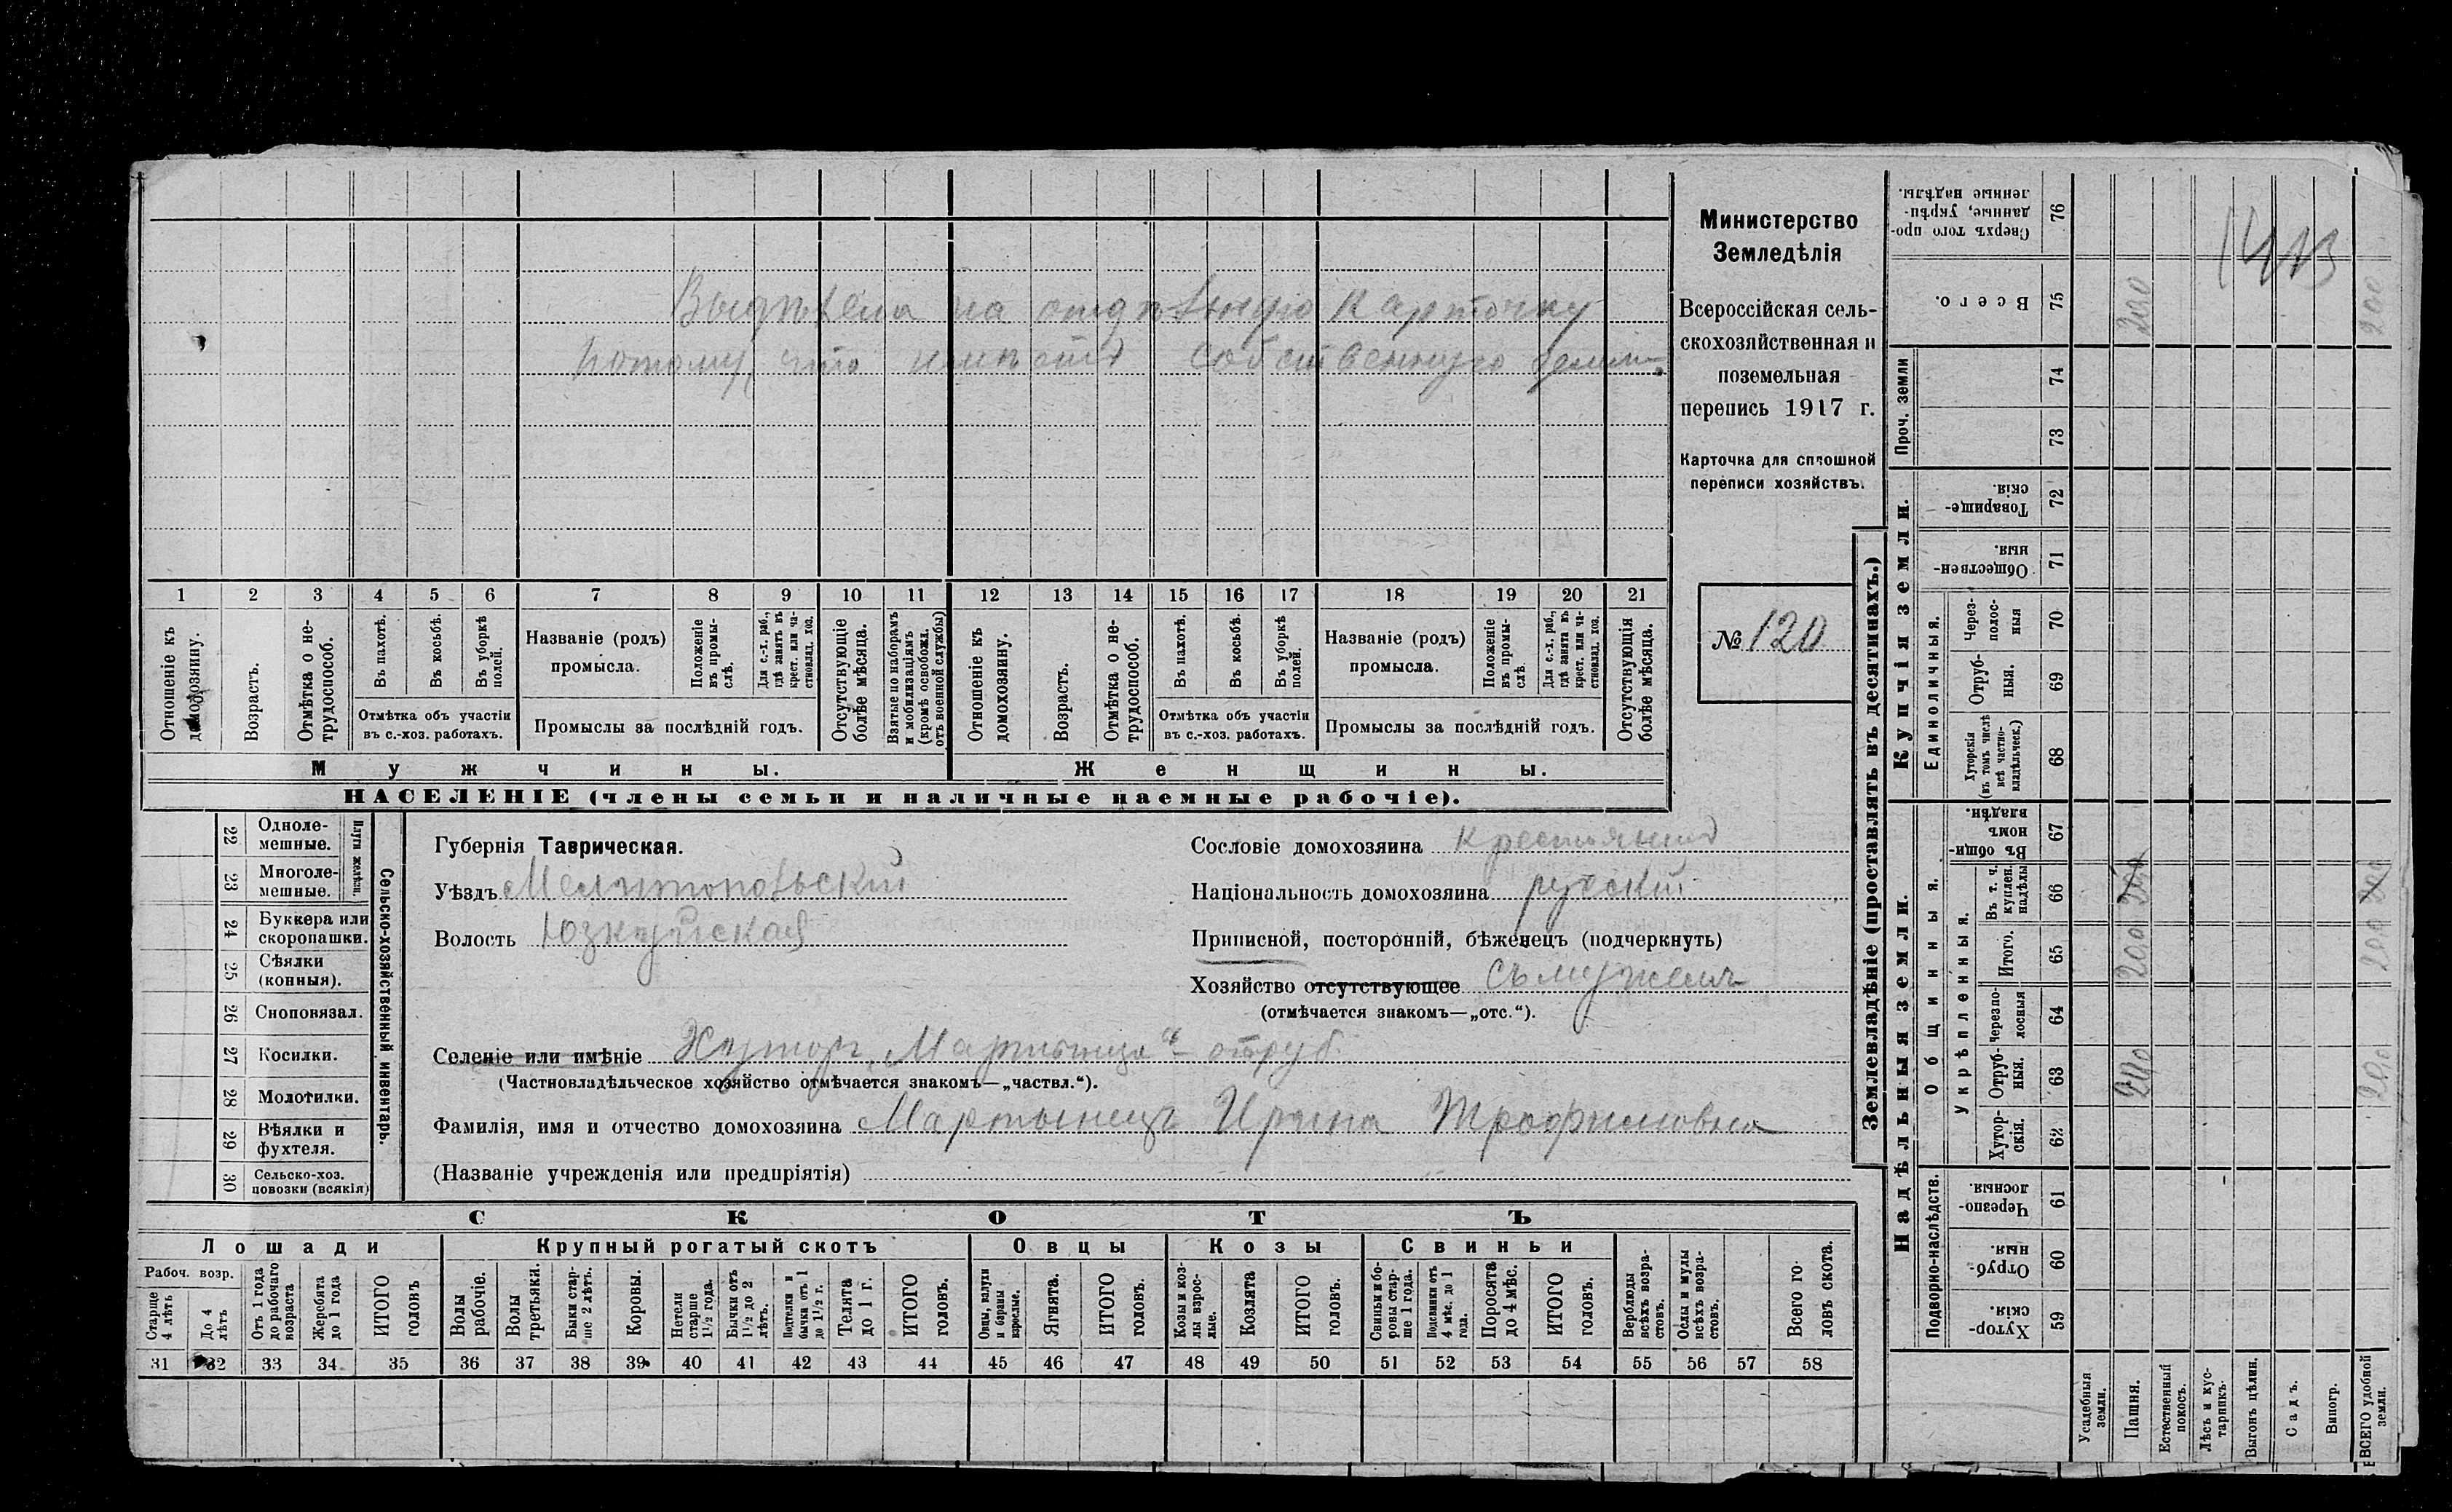 Выдѣлена на отдѣльную карточку
потому, что имѣетъ собственную землю.
1 2 3 4 5 6 7 8 9 10 11 12 13 14 15 16 17 18 19 20 21
Отношеніе къ домохозяину.
Возрастъ.
Отмѣтка о нетрудоспособ.
Въ пахотѣ.
Въ косьбѣ.
Въ уборкѣ полей.
Отмѣтка объ участіи
въ с.-хоз. работахъ.
Названіе (родъ)
промысла.
Положеніе въ промыслѣ.
Для с.-х. раб., гдѣ занятъ въ крест. или частновлад. хоз.
Промыслы за послѣдній годъ.
Отсутствующіе болѣе мѣсяца.
Взятые по наборамъ и мобилизаціямъ (кромѣ освобожд. отъ военной службы)
Отношеніе къ домохозяину.
Возрастъ.
Отмѣтка о нетрудоспособ.
Въ пахотѣ.
Въ косьбѣ.
Въ уборкѣ полей.
Отмѣтка объ участіи
въ с.-хоз. работахъ.
Названіе (родъ)
промысла.
Положеніе въ промыслѣ.
Для с.-х. раб., гдѣ занята въ крест. или частновлад. хоз.
Промыслы за послѣдній годъ.
Отсутствующія болѣе мѣсяца.
Мужчины. Женщины.
НАСЕЛЕНІЕ (члены семьи и наличные наемные рабочіе).
Министерство
Земледѣлія
Всероссійская сель-
скохозяйственная и
поземельная
перепись 1917 г.
Карточка для сплошной
переписи хозяйствъ.
№ 120
Сельско-хозяйственный инвентарь.
Плуги желѣзн.
22 Одноле-
мешные.
23 Многоле-
мешные.
24 Буккера или
скоропашки.
25 Сѣялки
(конныя).
26 Сноповязал.
27 Косилки.
28 Молотилки.
29 Вѣялки и
фухтеля.
30 Сельско-хоз.
повозки (всякія)
Губернія Таврическая.
Уѣздъ Мелитопольскій
Волость Юзкуйская
Сословіе домохозяина крестьянинъ
Національность домохозяина русскій
Приписной, посторонній, бѣженецъ (подчеркнуть)
Хозяйство отсутствующее съ мужемъ
(отмѣчается знакомъ—„отс.“).
Селеніе или имѣніе Хуторъ „Мартынца“ - отруб.
(Частновладѣльческое хозяйство отмѣчается знакомъ—„частвл.“).
Фамилія, имя и отчество домохозяина Мартынецъ Ирина Трофимовна
(Названіе учрежденія или предпріятія)
СКОТЪ
Лошади Крупный рогатый скотъ Овцы Козы Свиньи
Рабоч. возр.
Старше 4 лѣтъ
До 4 лѣтъ
Отъ 1 года до рабочаго возраста
Жеребята до 1 года
ИТОГО головъ
Волы рабочіе.
Волы третьяки.
Быки старше 2 лѣтъ.
Коровы.
Нетели старше 1½ года.
Бычки отъ 1½ до 2 лѣтъ.
Подтелки и бычки отъ 1 до 1½ г.
Телята до 1 г.
ИТОГО головъ.
Овцы, валухи и бараны взрослые.
Ягнята.
ИТОГО головъ.
Козы и козлы взрослые.
Козлята
ИТОГО головъ.
Свиньи и боровы старше 1 года.
Подсвинки отъ 4 мѣс. до 1 года.
Поросята до 4 мѣс.
ИТОГО головъ.
Верблюды всѣхъ возрастовъ.
Ослы и мулы всѣхъ возрастовъ.
Всего головъ скота.
31 32 33 34 35 36 37 38 39 40 41 42 43 44 45 46 47 48 49 50 51 52 53 54 55 56 57 58
Землевладѣніе (проставлять въ десятинахъ.)
Надѣльныя земли. Купчія земли. Проч. земли
Подворно-наслѣдств. Общинныя. Укрѣпленныя. Единоличныя.
Хуторскія. 59
Отрубныя. 60
Черезполосныя. 61
Хуторскія. 62
Отрубныя. 63 200 200
Черезполосныя 64
Итого. 65 200 200
Въ т. ч. куплен. надѣлы 66 200 200
Въ общинномъ владѣн. 67
Хуторскія (въ томъ числѣ всѣ частновладѣльческ.) 68
Отрубныя. 69
Черезполосныя 70
Общественныя. 71
Товарищескія. 72
73
74
Всего. 75 200 200
Сверхъ того проданные, укрѣпленные надѣлы. 76
Усадебныя земли.
Пашня.
Естественный покосъ.
Лѣсъ и кустарникъ.
Выгонъ цѣлин.
Садъ.
Виногр.
ВСЕГО удобной земли.